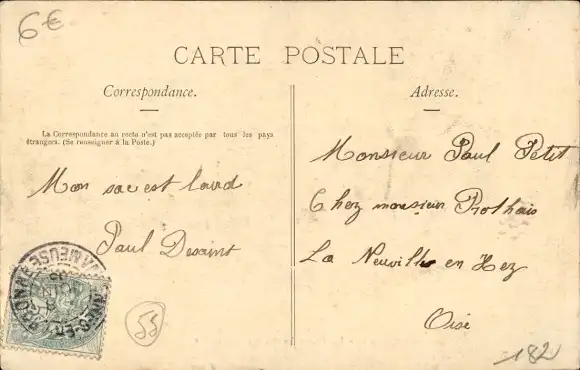 6€
CARTE POSTALE
Correspondance.
La Correspondance au recto n'est pas acceptée par tous les pays
étrangers. (Se renseigner à la Poste.)
Mon sac est lourd
Paul Desaint
55
Adresse.
Monsieur Paul Petit
Chez monsieur Rothais
La Neuville en Hez
Oise
182